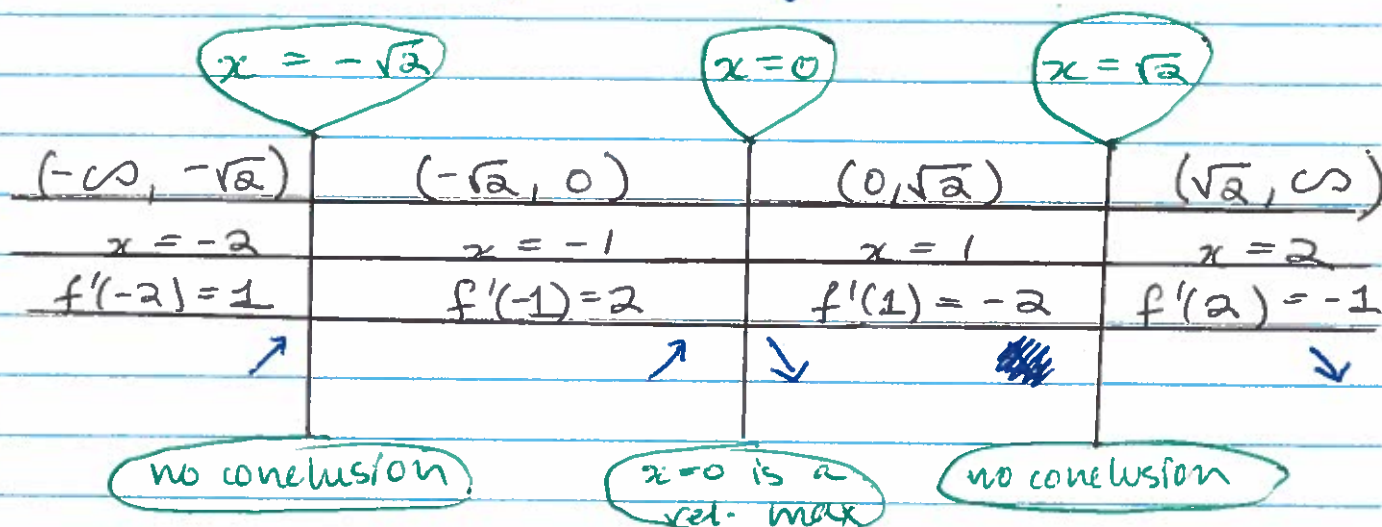 x = -√2 x = 0 x = √2
(-∞, -√2) (-√2, 0) (0, √2) (√2, ∞)
x = -2 x = -1 x = 1 x = 2
f'(-2) = 1 f'(-1) = 2 f'(1) = -2 f'(2) = -1
↗ ↗ ↘ ↘
no conclusion x=0 is a no conclusion
rel. max